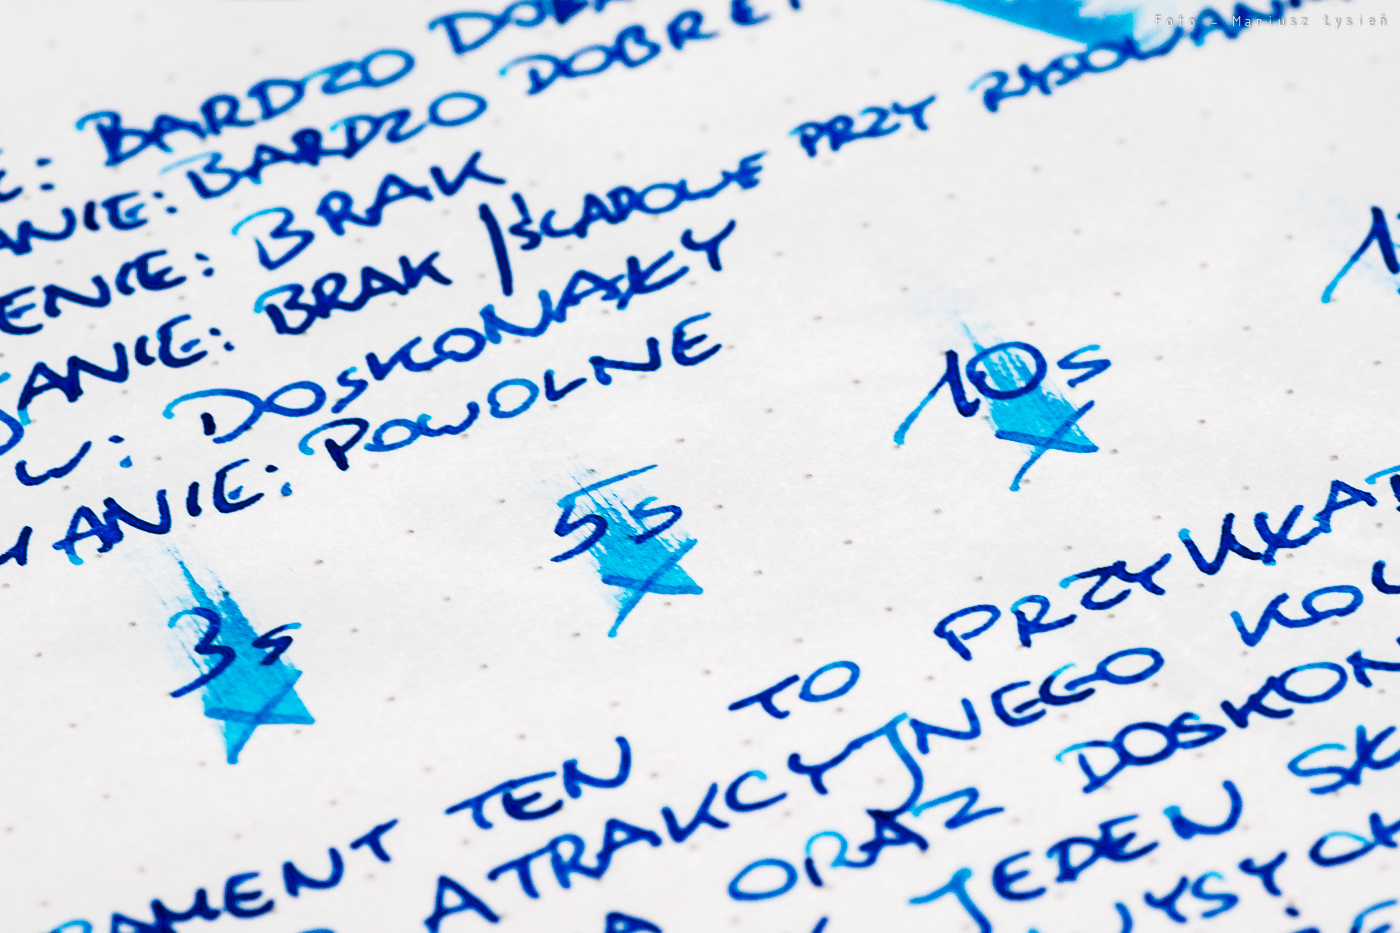 Foto - Mariusz Łysień
: BARDZO
ANIE: BARDZO DOBRE
ENIE: BRAK
ANIE: BRAK / ŚLADOWE PRZY RYSOWAN
W: DOSKONAŁY
ANIE: POWOLNE
3s 5s 10s 1
AMENT TEN TO PRZYKŁAD
ATRAKCYJNEGO KO
ORAZ DOSKON
JEDEN SK
YSYCH